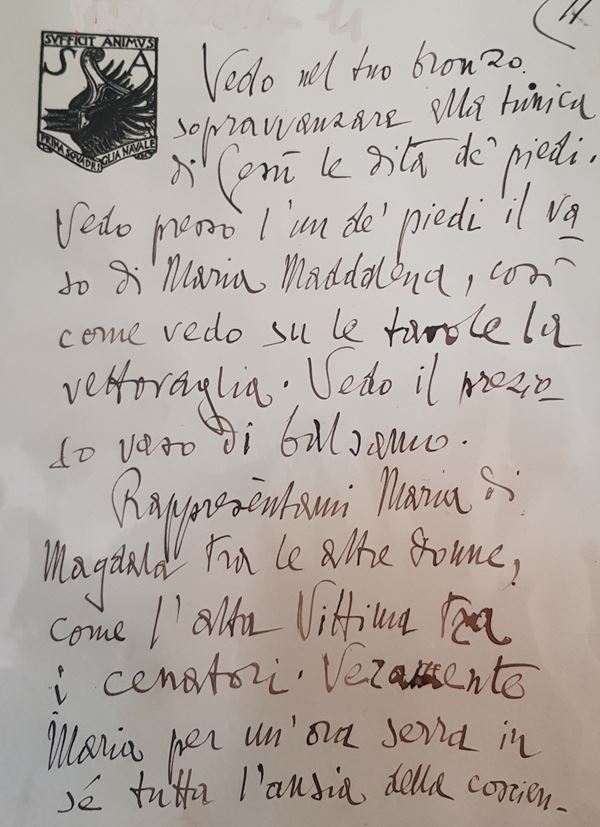 11
SVFFICIT ANIMVS
S A
PRIMA SQVADRIGLIA NAVALE
Vedo nel tuo bronzo
sopravvanzare alla tunica
di Gesù le dita de' piedi.
Vedo presso l'un de' piedi il va-
so di Maria Maddalena, così
come vedo su le tavole la
vettovaglia. Vedo il prezio-
so vaso di balsamo.
Rappresèntami Maria di
Magdala tra le altre donne,
come l'alta Vittima tra
i cenatori. Veramente
Maria per un'ora serra in
sé tutta l'ansia della coscien-